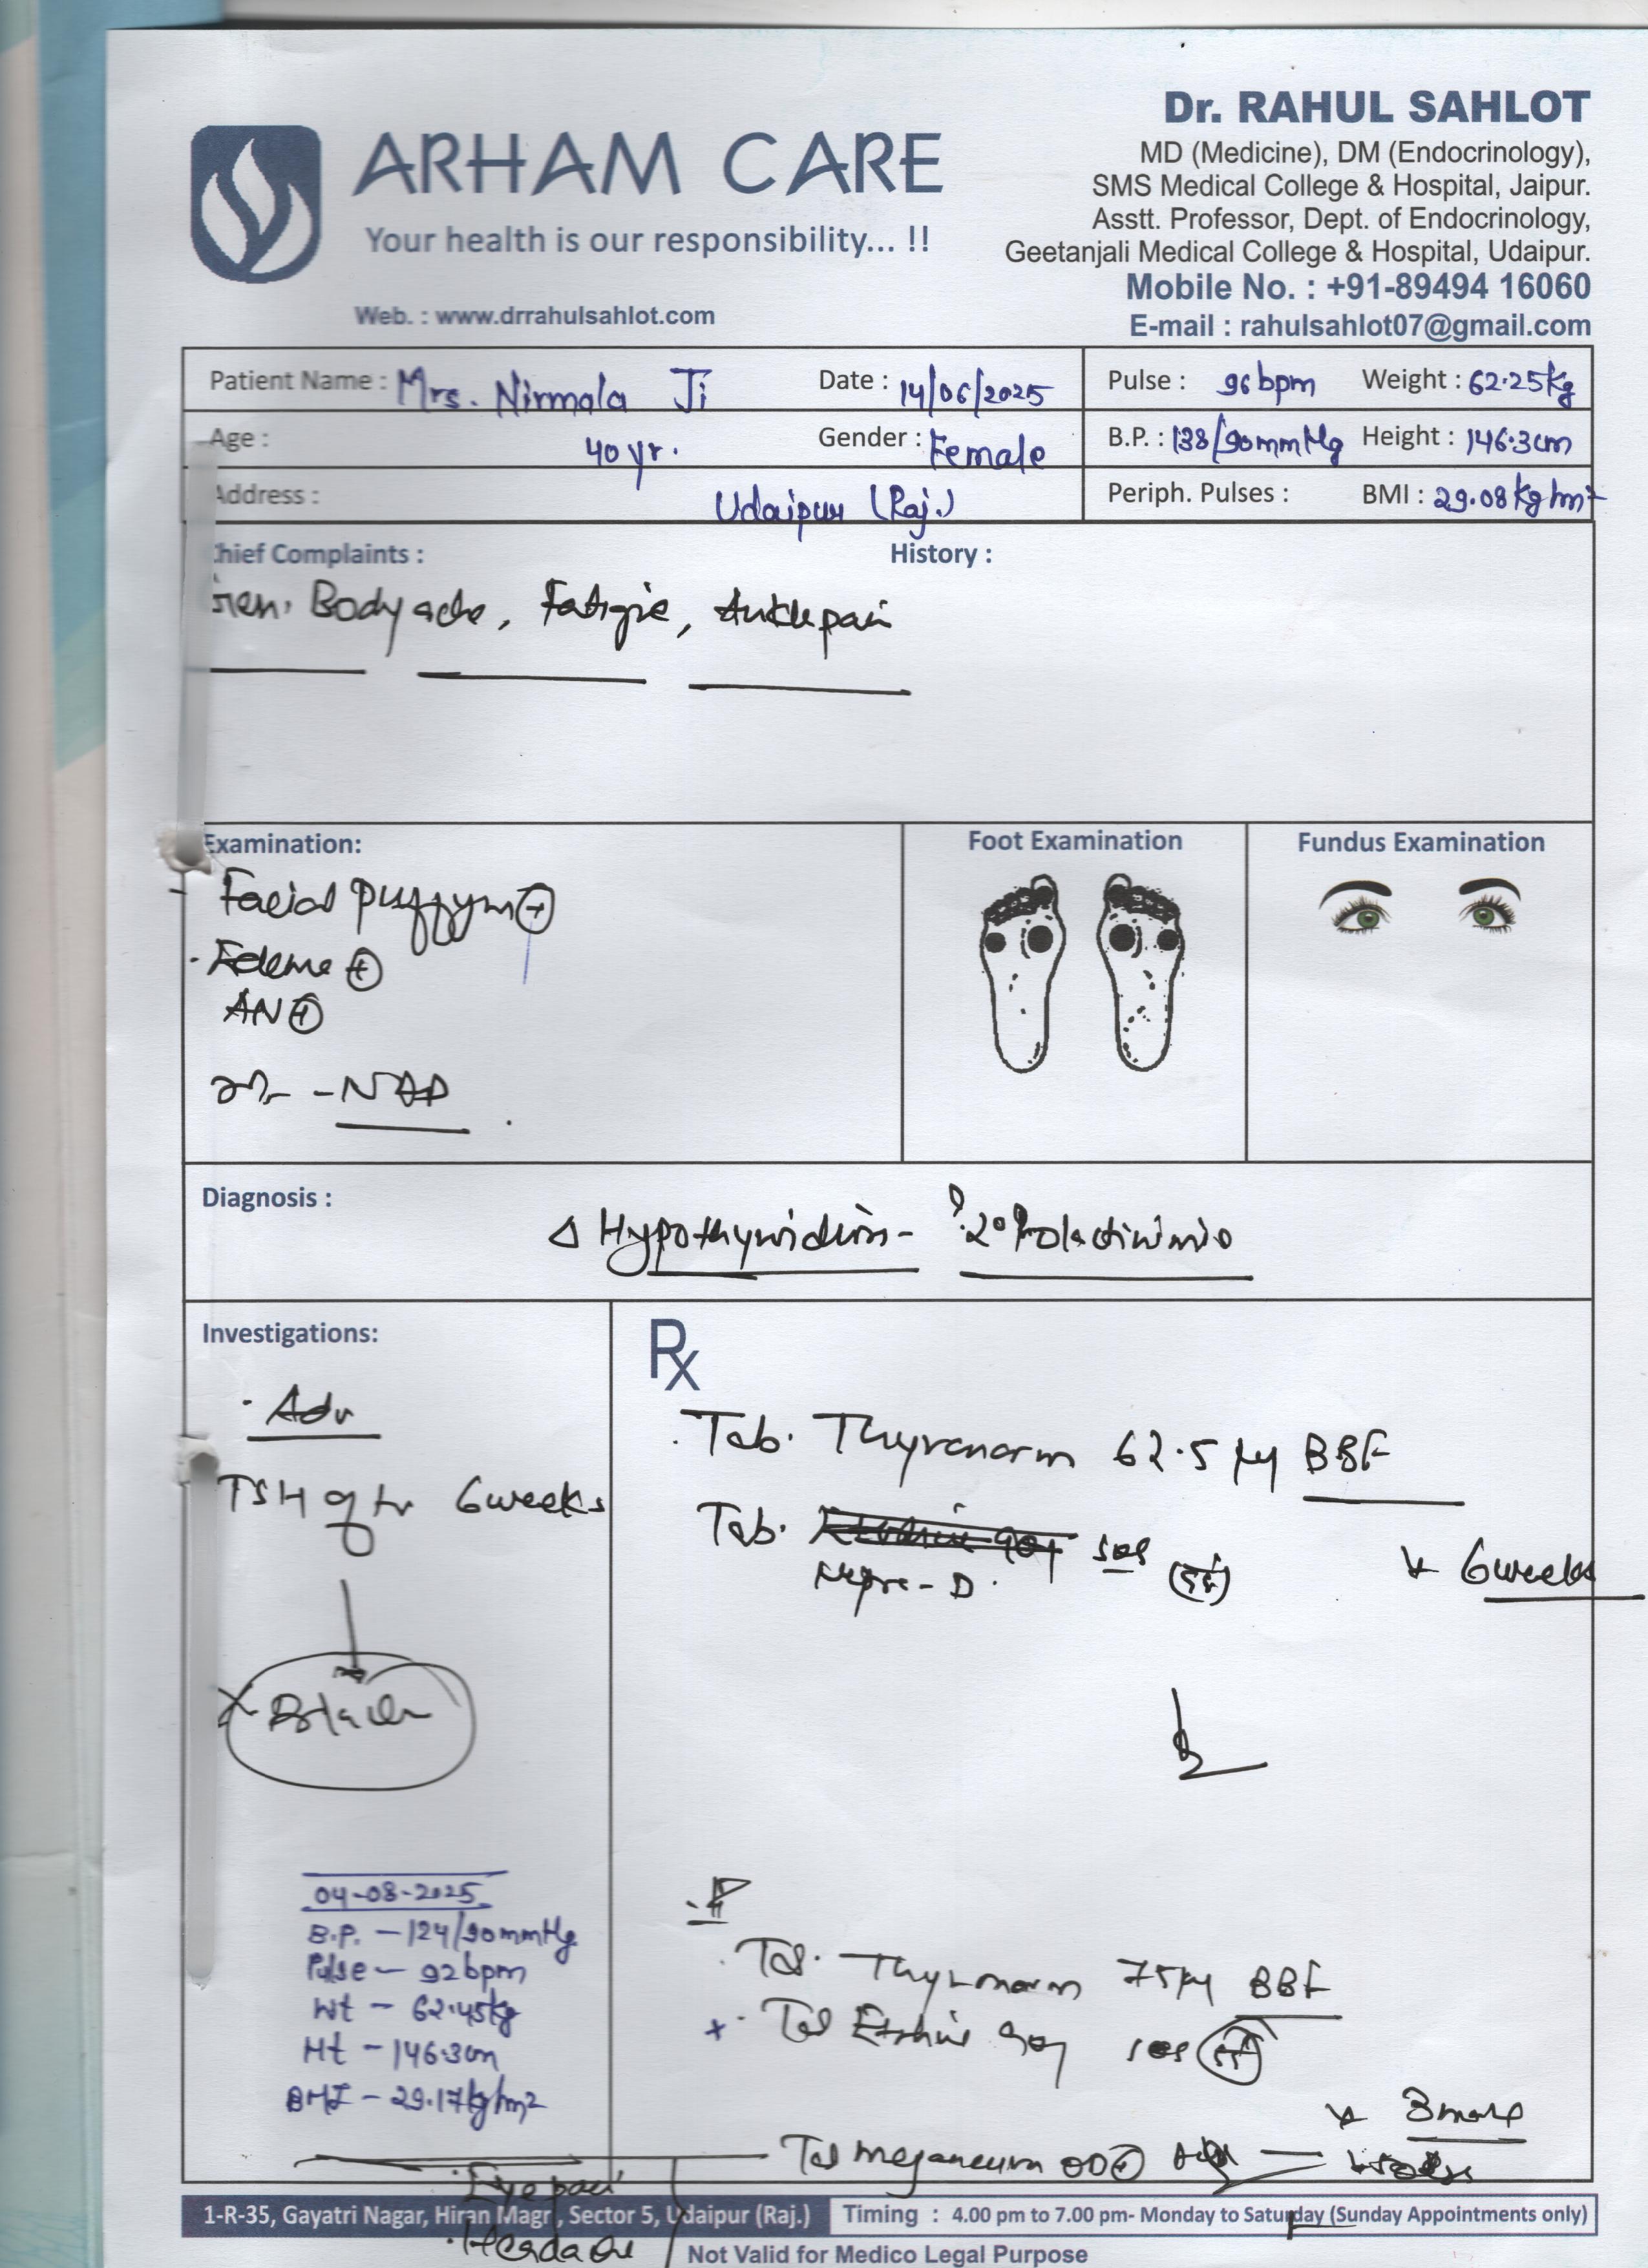 Dr. RAHUL SAHLOT
ARHAM CARE
MD (Medicine), DM (Endocrinology),
SMS Medical College & Hospital, Jaipur.
Your health is our responsibility... !!
Asstt. Professor, Dept. of Endocrinology,
Geetanjali Medical College & Hospital, Udaipur.
Mobile No. : +91-89494 16060
Web. : www.drrahulsahlot.com
E-mail : rahulsahlot07@gmail.com
Patient Name : Mrs. Nirmala Ji Date : 14/06/2025 Pulse : 96 bpm Weight : 62.25kg
Age : 40 yr. Gender : Female B.P. : 138/90mmHg Height : 146.3cm
Address : Udaipur (Raj.) Periph. Pulses : BMI : 29.08kg/m²
Chief Complaints : History :
Gen. Bodyache, Fatigue, Ankle pain
Examination: Foot Examination Fundus Examination
- Facial +
- Edema +
AN +
- NAD
Diagnosis :
Δ Hypothyroidism - ? 2° Prolactinemia
Investigations: Rx
Adv
Tab. Thyronorm 62.5 µg BBF
TSH 6 weeks
Tab. SOS
- D 6 weeks
04-08-2025
B.P. - 124/90mmHg
Pulse - 92bpm
Tab. Thyronorm 75 µg BBF
Wt - 62.45kg
Tab 90 SOS
Ht - 146.3cm
BMI - 29.17kg/m²
Tab Meganeuron OD+
Eye pain
1-R-35, Gayatri Nagar, Hiran Magri, Sector 5, Udaipur (Raj.) Timing : 4.00 pm to 7.00 pm- Monday to Saturday (Sunday Appointments only)
Headache
Not Valid for Medico Legal Purpose